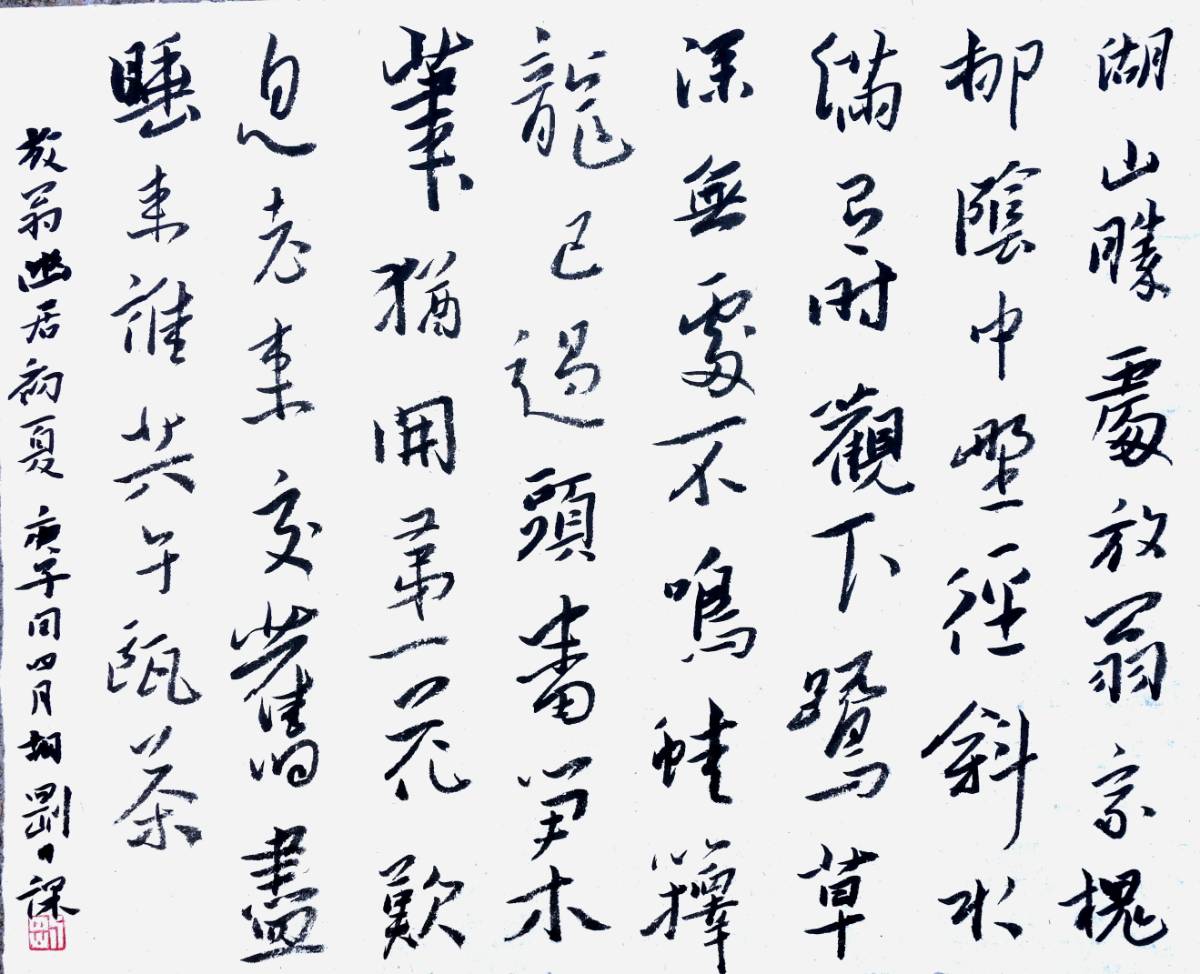 湖山勝處放翁家槐
柳陰中野徑斜水
滿有時觀下鷺草
深無處不鳴蛙籜
龍已過頭番笋木
筆猶開第一花歎
息老來交舊盡
睡來誰共午甌茶
放翁幽居初夏 庚子閏四月胡剛日課